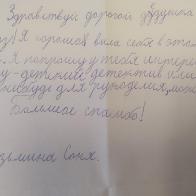 Здравствуй дорогой дедушка
з! Я хорошо вила себя в этом
. Я попрошу у тебя
у-детский детектив или
нибудь для рукоделия, мож
Большое спасибо!
зьмина Соня.